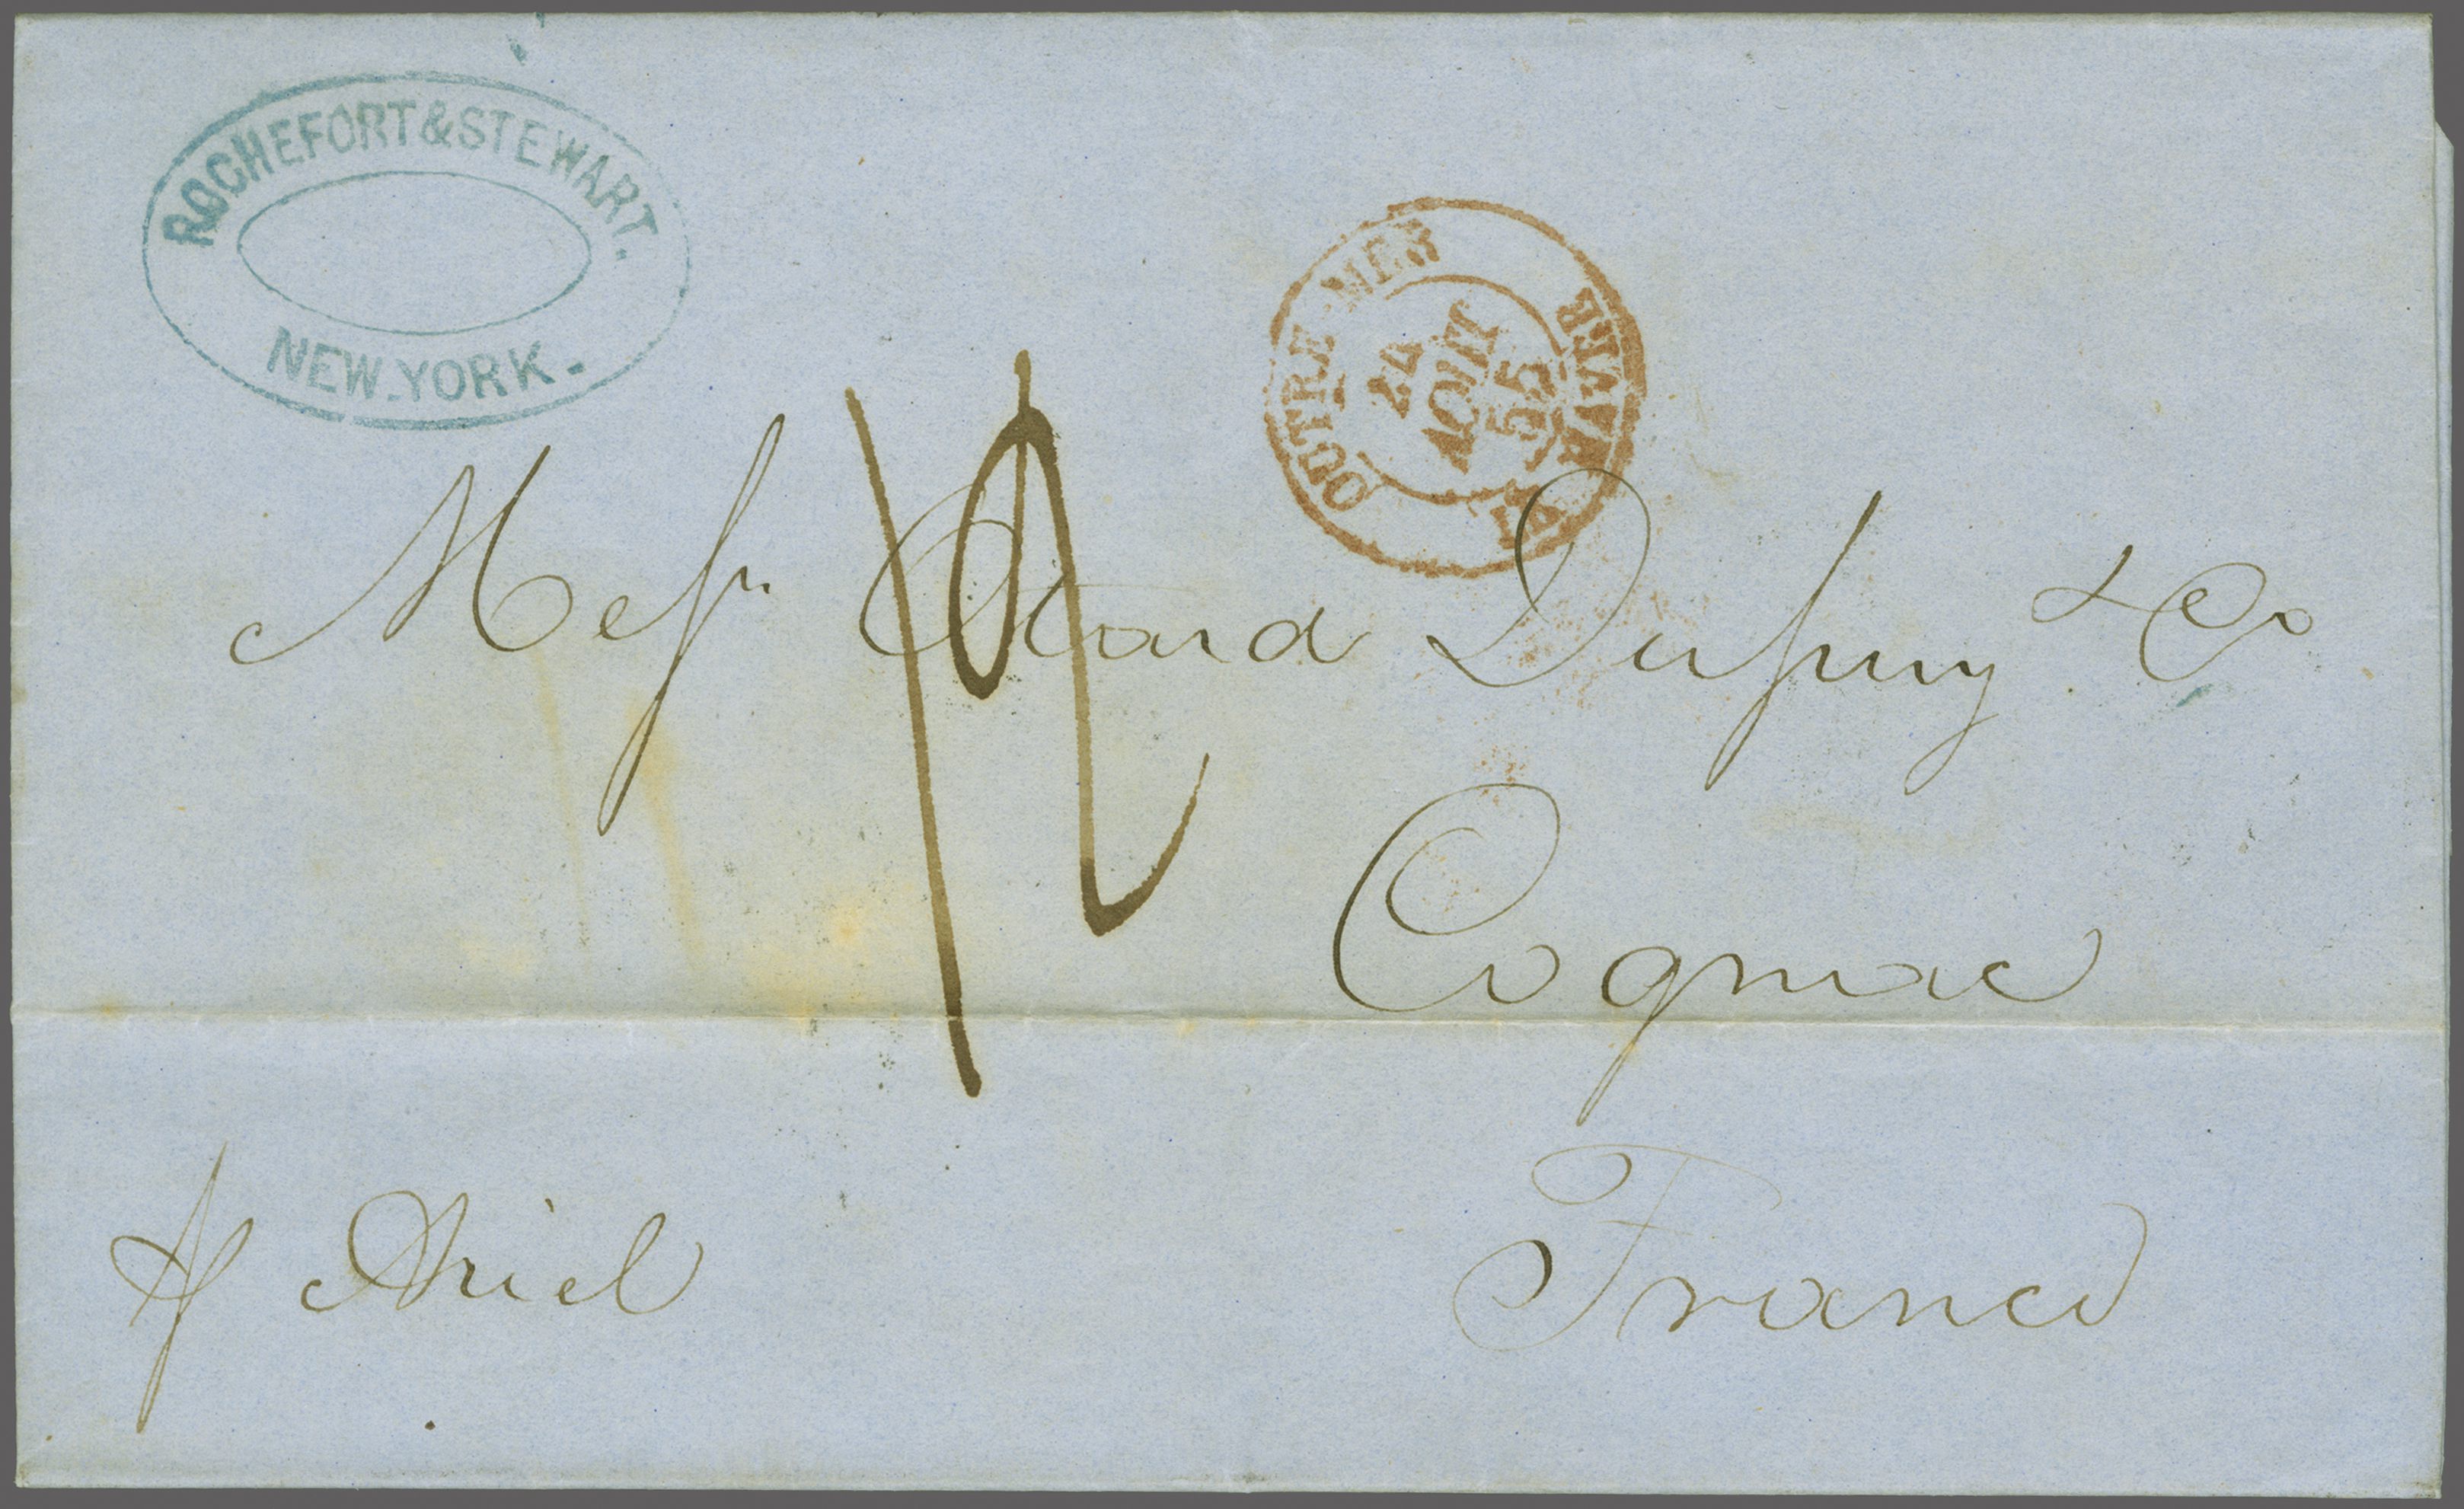 ROCHEFORT & STEWART.
NEW-YORK.
OUTRE MER
24
AOUT
55
LE HAVRE
12
Messrs Otard Dupuy & Co
Cognac
France
p Ariel